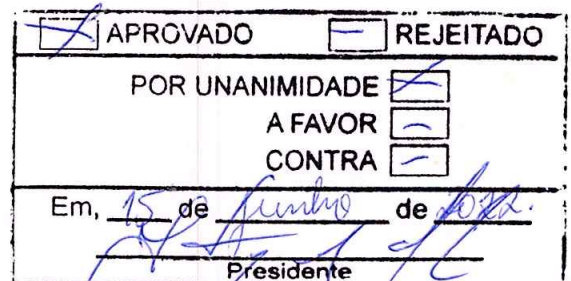 APROVADO REJEITADO
POR UNANIMIDADE
A FAVOR
CONTRA
Em, 15 de Junho de
Presidente